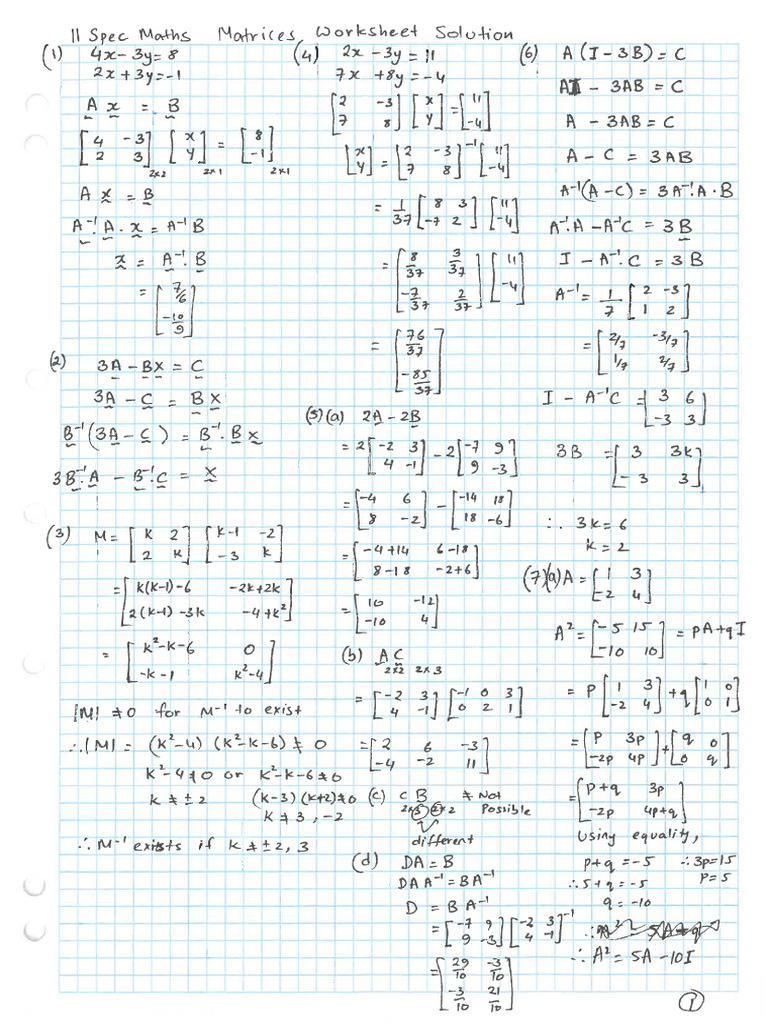 11 Spec Maths Matrices Worksheet Solution
(1) 4x-3y=8
2x+3y=-1
A x = B
[4 -3; 2 3] 2x2 [x; y] 2x1 = [8; -1] 2x1
A x = B
A⁻¹. A. x = A⁻¹ B
x = A⁻¹. B
= [7/6; -10/9]
(2) 3A - Bx = C
3A - C = B x
B⁻¹(3A - C) = B⁻¹. B x
3B⁻¹. A - B⁻¹. C = x
(3) M = [k 2; 2 k] [k-1 -2; -3 k]
= [k(k-1)-6 -2k+2k; 2(k-1)-3k -4+k²]
= [k²-k-6 0; -k-1 k²-4]
|M| ≠0 for M⁻¹ to exist
∴|M| = (k²-4) (k²-k-6) ≠ 0
k²-4≠0 or k²-k-6≠0
k ≠ ±2 (k-3)(k+2)≠0
k ≠ 3, -2
∴ M⁻¹ exists if k ≠ ±2, 3
(4) 2x -3y = 11
7x +8y = -4
[2 -3; 7 8] [x; y] = [11; -4]
[x; y] = [2 -3; 7 8]⁻¹ [11; -4]
= 1/37 [8 3; -7 2] [11; -4]
= [8/37 3/37; -7/37 2/37] [11; -4]
= [76/37; -85/37]
(5)(a) 2A - 2B
= 2[-2 3; 4 -1] - 2[-7 9; 9 -3]
= [-4 6; 8 -2] - [-14 18; 18 -6]
= [-4+14 6-18; 8-18 -2+6]
= [10 -12; -10 4]
(b) AC
2x2 2x3
= [-2 3; 4 -1] [-1 0 3; 0 2 1]
= [2 6 -3; -4 -2 11]
(c) C B ≠ Not
2x3 2x2 Possible
different
(d) DA = B
DAA⁻¹ = BA⁻¹
D = BA⁻¹
= [-7 9; 9 -3] [-2 3; 4 -1]⁻¹
= [29/10 -3/10; -3/10 21/10]
(6) A (I - 3B) = C
AI - 3AB = C
A - 3AB = C
A - C = 3AB
A⁻¹(A - C) = 3A⁻¹. A. B
A⁻¹. A - A⁻¹C = 3B
I - A⁻¹. C = 3B
A⁻¹ = 1/7 [2 -3; 1 2]
= [2/7 -3/7; 1/7 2/7]
I - A⁻¹C = [3 6; -3 3]
3B = [3 3k; -3 3]
∴ 3k = 6
k = 2
(7)(a) A = [1 3; -2 4]
A² = [-5 15; -10 10] = pA+qI
= P[1 3; -2 4] + q[1 0; 0 1]
= [P 3P; -2P 4P] + [q 0; 0 q]
= [P+q 3p; -2p 4p+q]
Using equality,
p+q = -5 ∴ 3p=15
∴ 5+q = -5 P = 5
q = -10
∴ A² = 5A - 10I
1